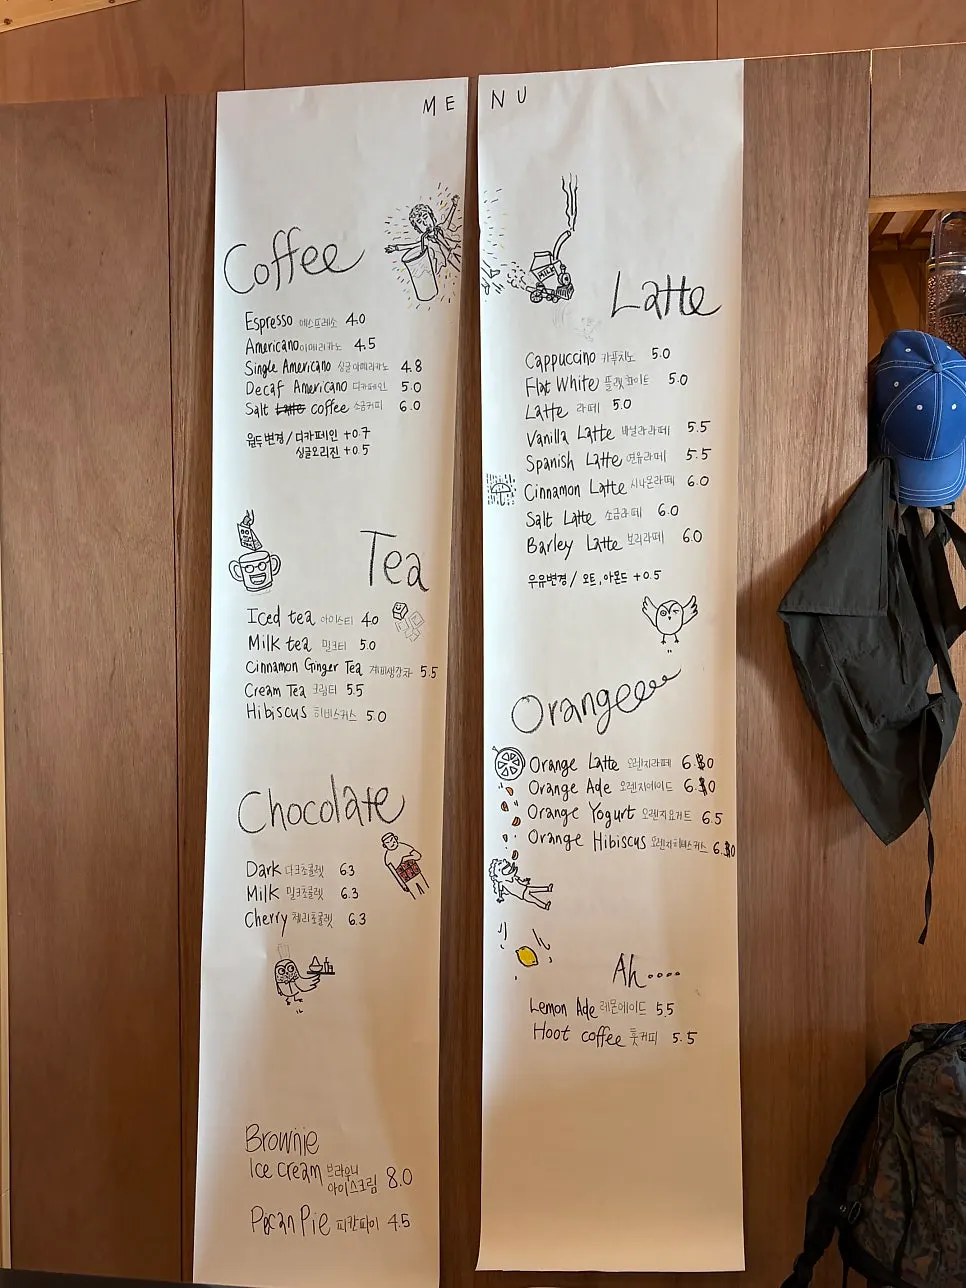 MENU
Coffee
Espresso 에스프레소 4.0
Americano 아메리카노 4.5
Single Americano 싱글아메리카노 4.8
Decaf Americano 디카페인 5.0
Salt Latte coffee 소금커피 6.0
원두변경 / 디카페인 +0.7
싱글오리진 +0.5
Tea
Iced tea 아이스티 4.0
Milk tea 밀크티 5.0
Cinnamon Ginger Tea 계피생강차 5.5
Cream Tea 크림티 5.5
Hibiscus 히비스커스 5.0
Chocolate
Dark 다크초콜렛 6.3
Milk 밀크초콜렛 6.3
Cherry 체리초콜렛 6.3
Brownie
Ice cream 브라우니
아이스크림 8.0
Pecan Pie 피칸파이 4.5
MILK
Latte
Cappuccino 카푸치노 5.0
Flat White 플랫화이트 5.0
Latte 라떼 5.0
Vanilla Latte 바닐라라떼 5.5
Spanish Latte 연유라떼 5.5
Cinnamon Latte 시나몬라떼 6.0
Salt Latte 소금라떼 6.0
Barley Latte 보리라떼 6.0
우유변경 / 오트, 아몬드 +0.5
Orangeee
Orange Latte 오렌지라떼 6.0
Orange Ade 오렌지에이드 6.0
Orange Yogurt 오렌지요거트 6.5
Orange Hibiscus 오렌지히비스커스 6.0
Ah....
Lemon Ade 레몬에이드 5.5
Hoot coffee 훗커피 5.5